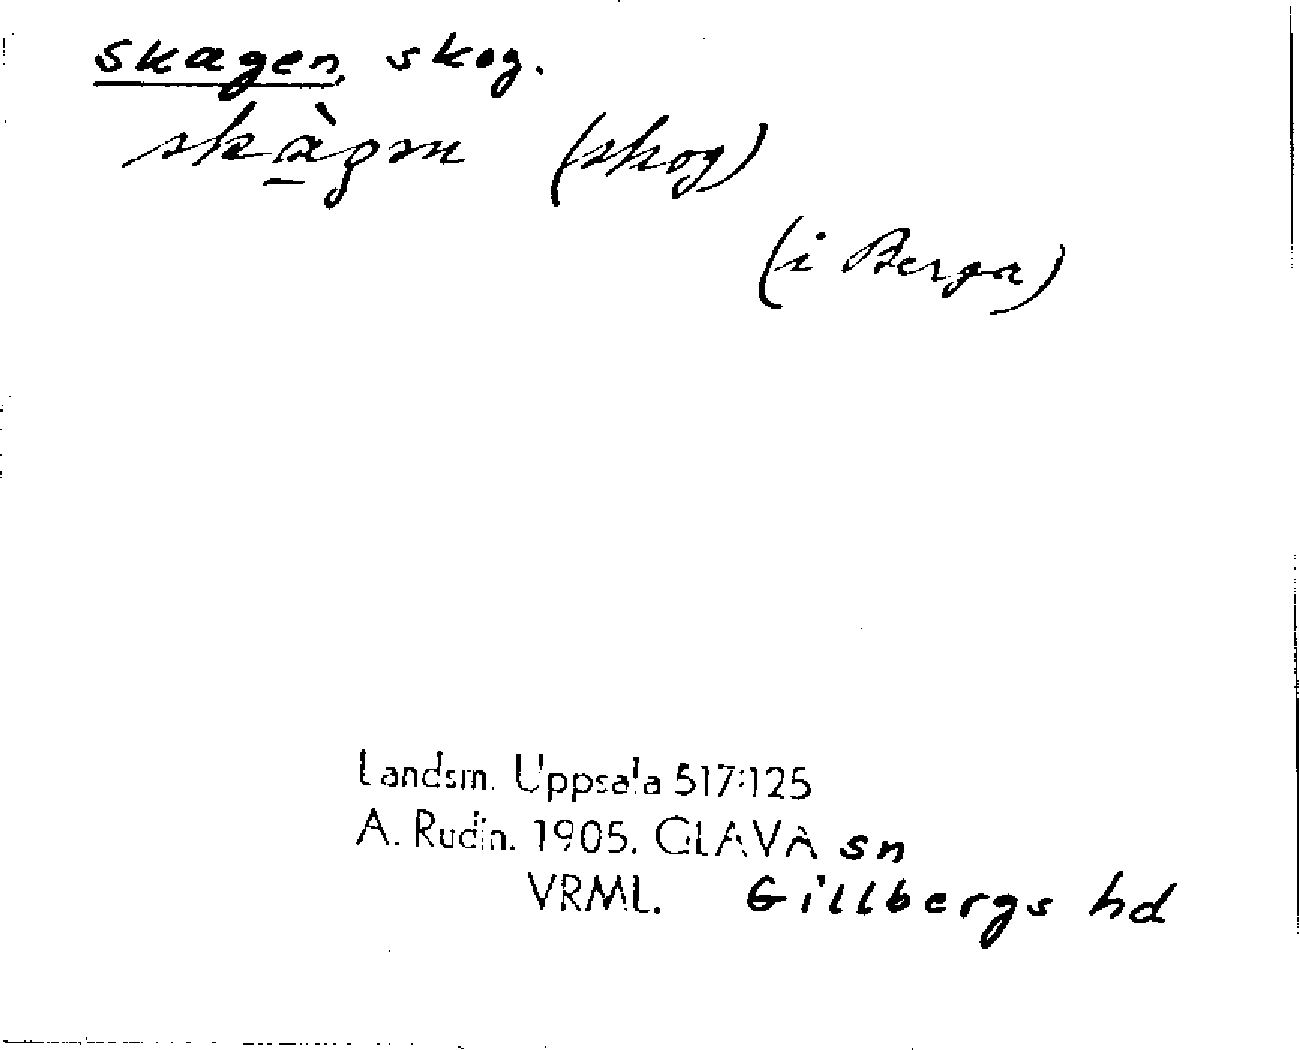 Skagen, skog.
skàgən (skog)
(i Berga)
Landsm. Uppsala 517:125
A. Rudin. 1905. GLAVA sn
VRML. Gillbergs hd